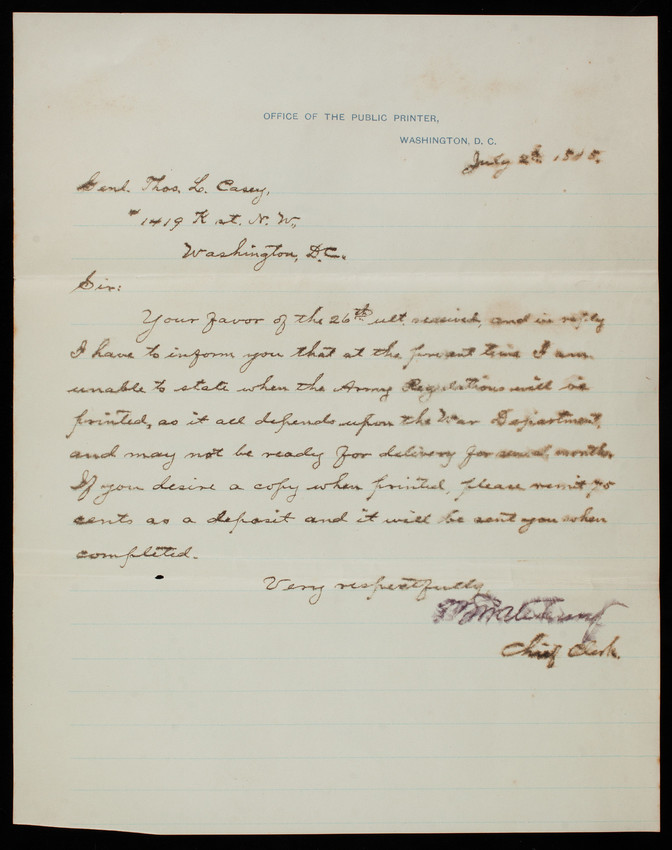 OFFICE OF THE PUBLIC PRINTER,
WASHINGTON, D. C.
July 2d
Genl. Thos. L. Casey,
#1419 K st. N. W.,
Washington, D.C.
Sir:
Your favor of the 26th ult. received, and in reply
I have to inform you that at the present time I am
unable to state when the Army Regulations will be
printed, as it all depends upon the War Department,
and may not be ready for delivery for several months.
If you desire a copy when printed, please remit 75
cents as a deposit and it will be sent you when
completed.
Very respectfully
Chief Clerk.